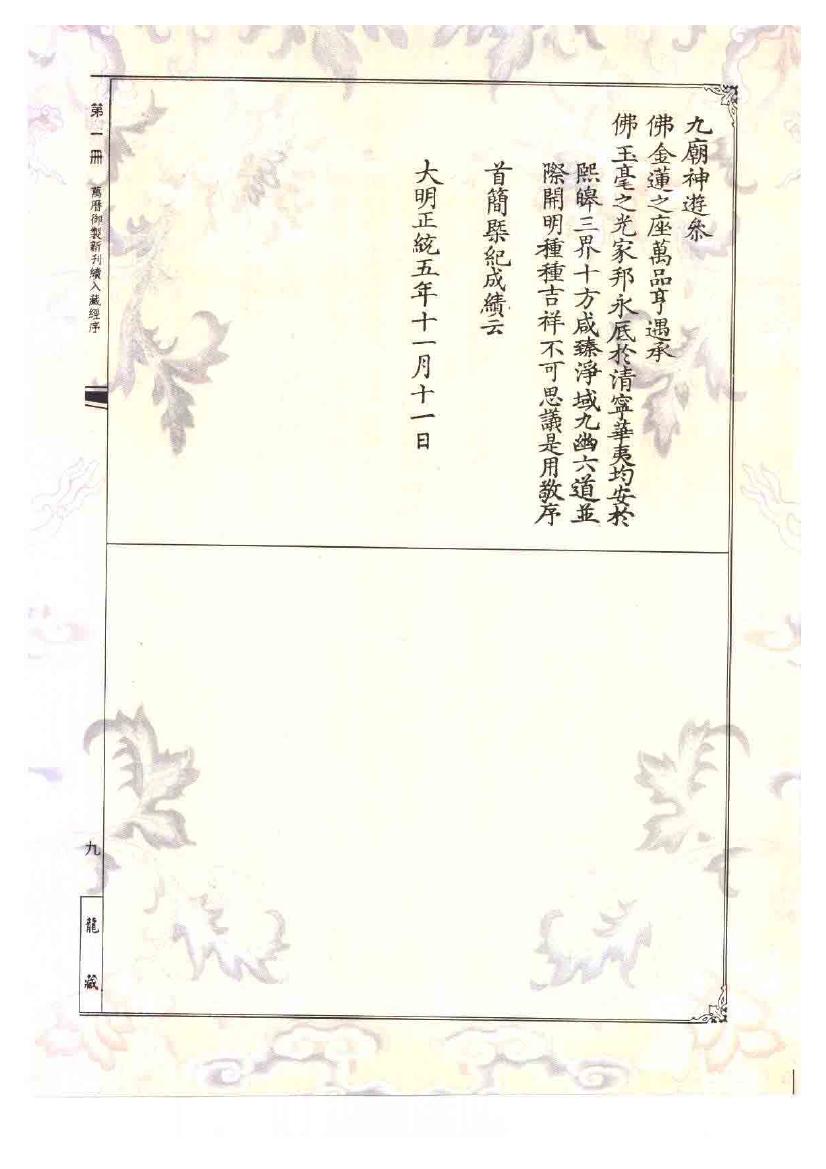 九廟神遊叅
佛金蓮之座萬品亨遇承
佛玉毫之光家邦永底於清寧華夷均安於
熙皞三界十方咸臻淨域九幽六道並
際開明種種吉祥不可思議是用敬序
首簡槩紀成績云
大明正統五年十一月十一日
第一冊 萬曆御製新刊續入藏經序
九
龍藏